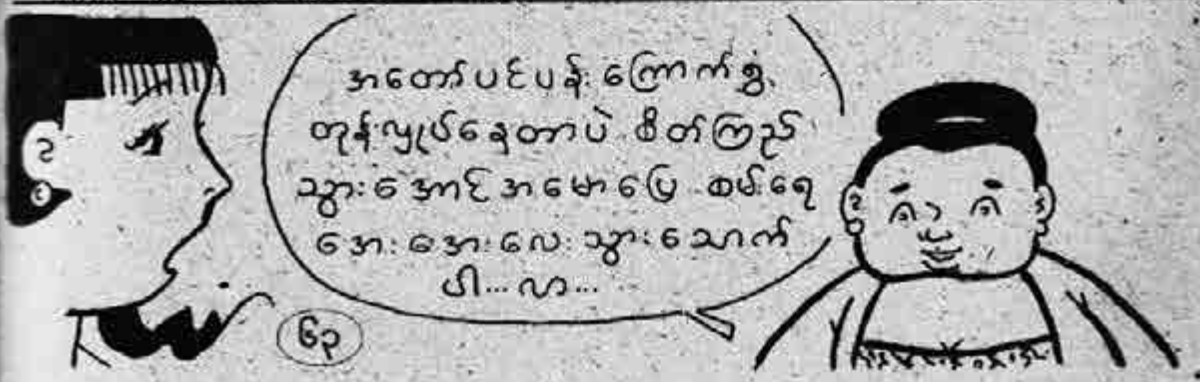 အတော်ပင်ပန်း ကြောက်ရွံ့
တုန်လှုပ်နေတာပဲ စိတ်ကြည်
သွားအောင်အမောပြေ စမ်းရေ
အေးအေးလေး သွားသောက်
ပါ...လား...
၆၃